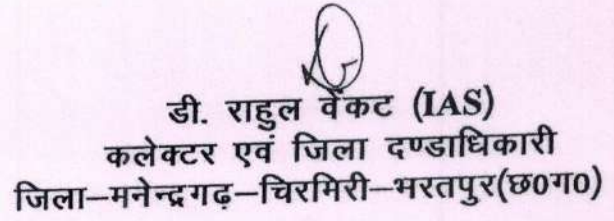 डी. राहुल वेंकट (IAS)
कलेक्टर एवं जिला दण्डाधिकारी
जिला–मनेन्द्रगढ़–चिरमिरी–भरतपुर(छ0ग0)